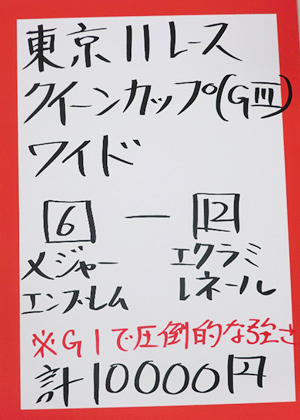 東京11レース
クイーンカップ(GⅢ)
ワイド
6 — 12
メジャー エクラミ
エンブレム レネール
※G1で圧倒的な強さ
計10000円